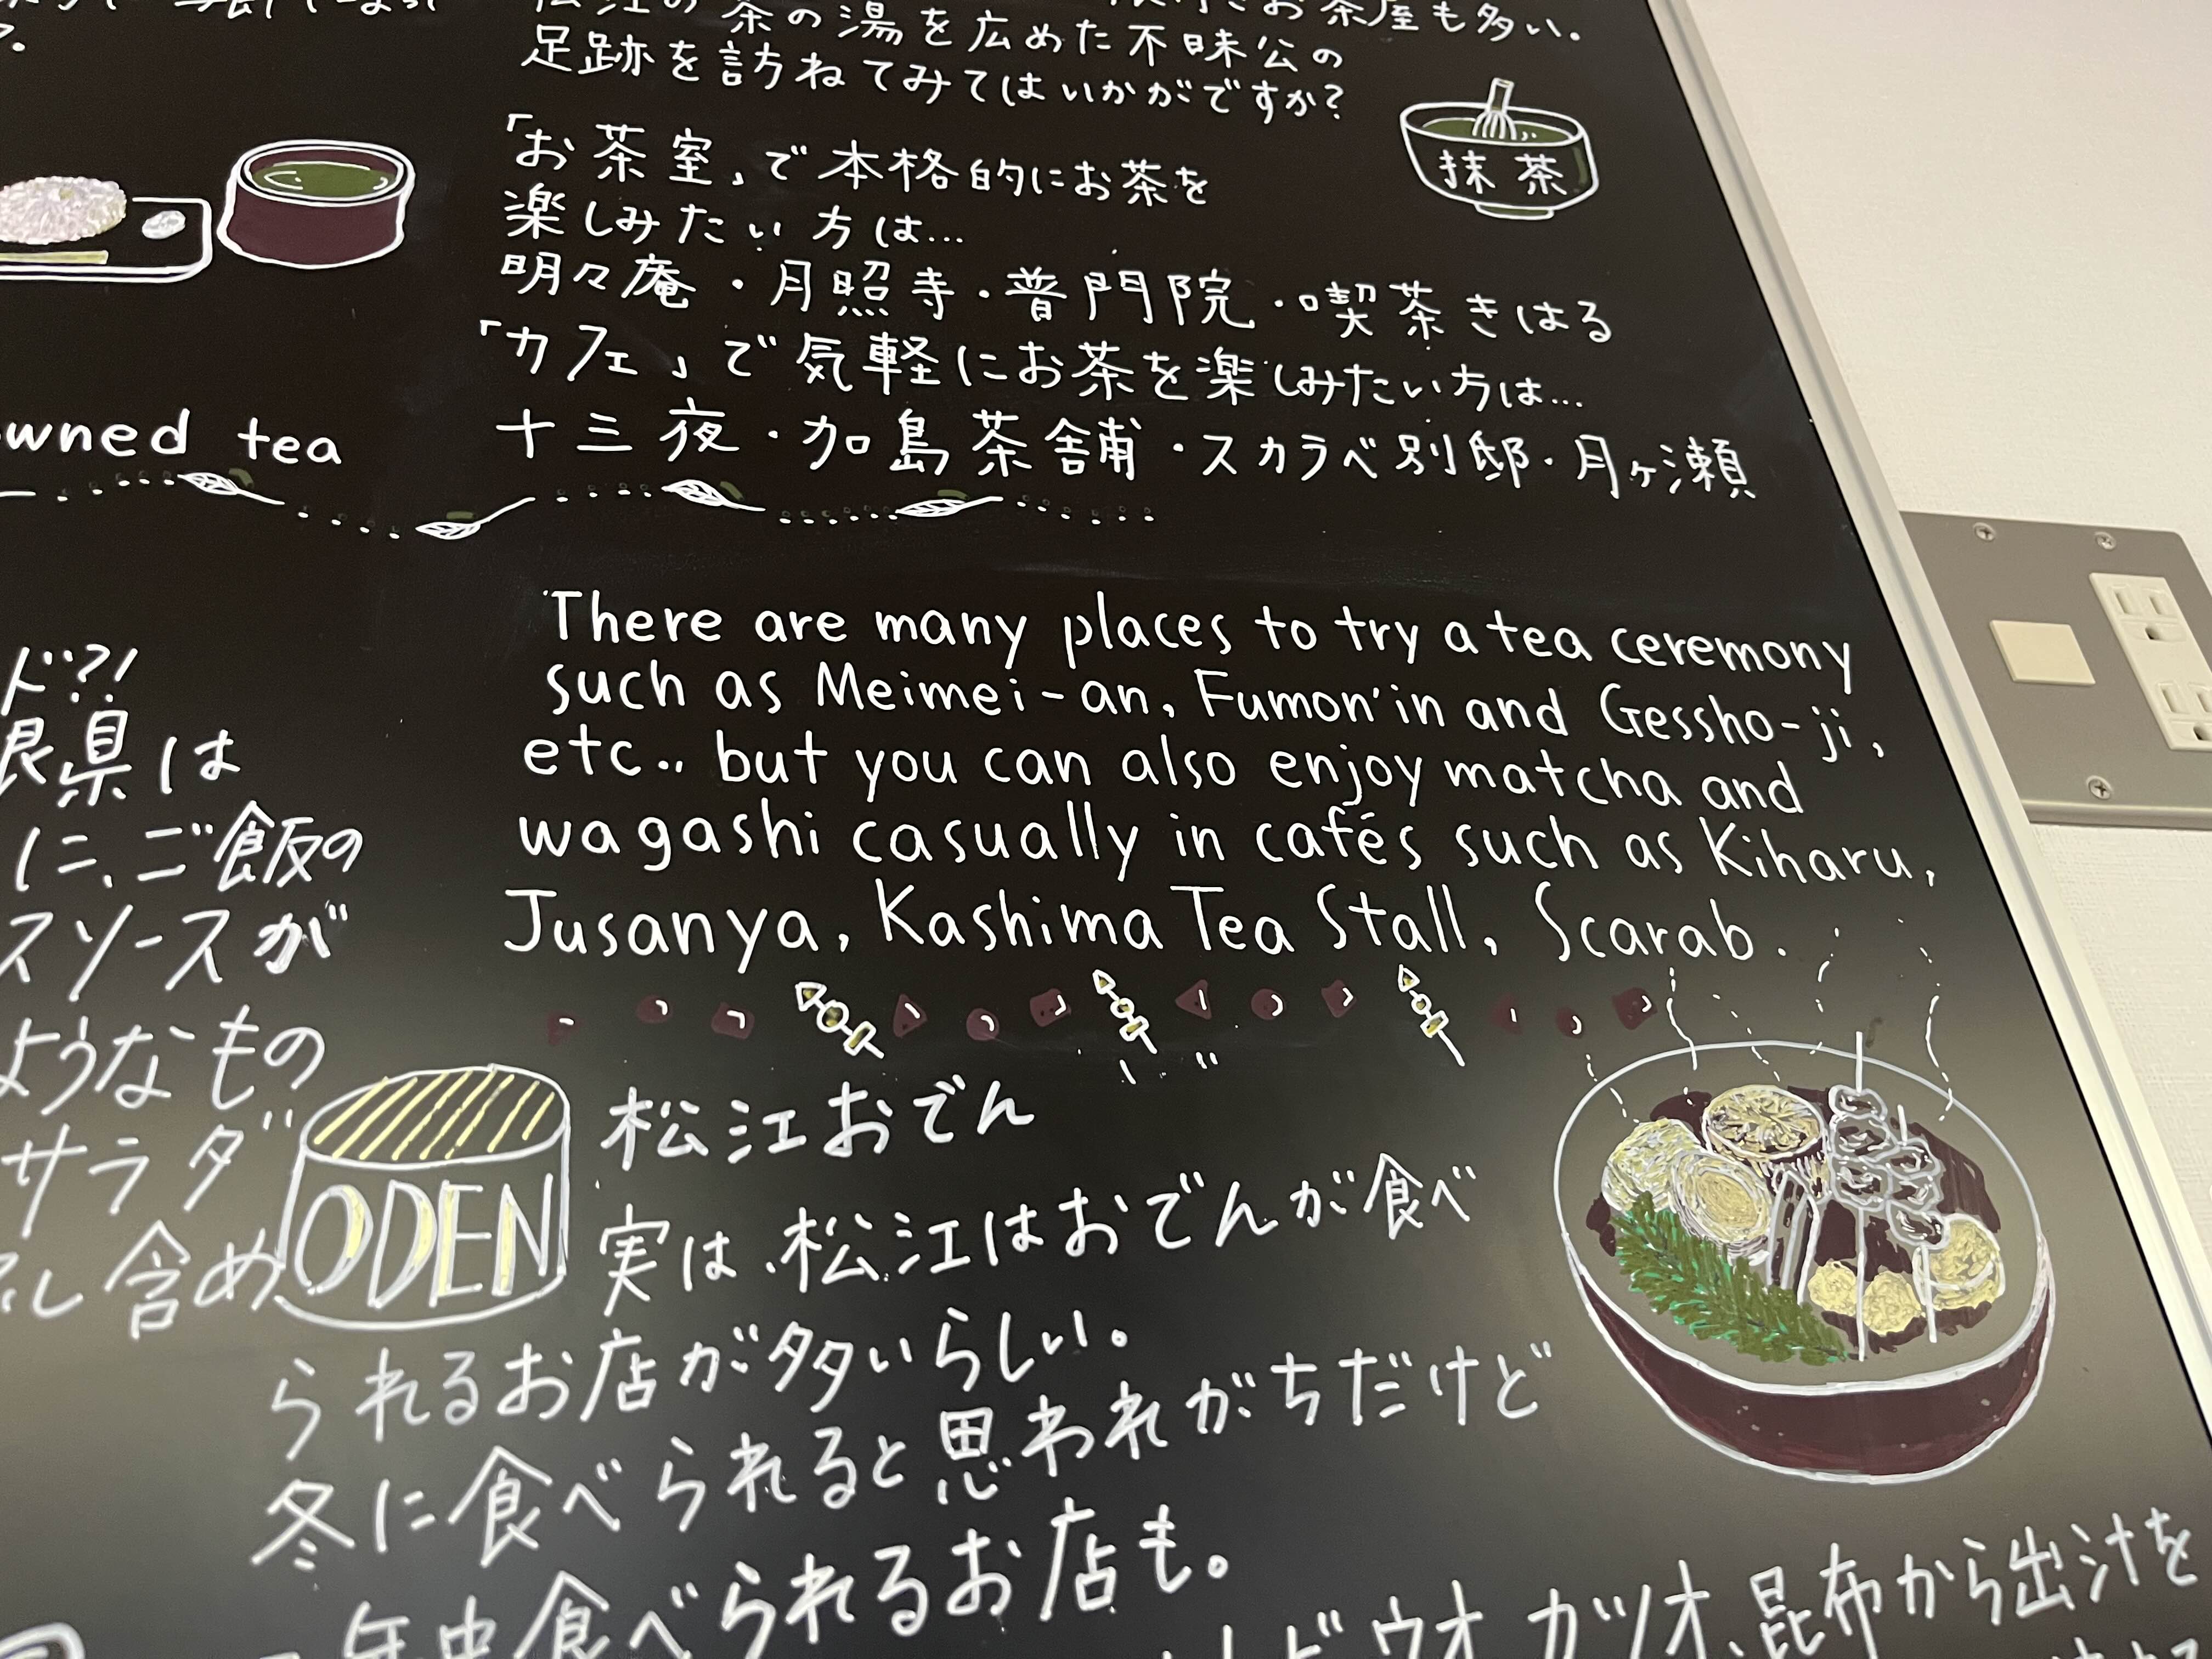 茶の湯を広めた不昧公の
お茶屋も多い。
足跡を訪ねてみてはいかがですか?
「お茶室」で本格的にお茶を
楽しみたい方は...
明々庵・月照寺・普門院・喫茶きはる
「カフェ」で気軽にお茶を楽しみたい方は...
十三夜・加島茶舗・スカラベ別邸・月ヶ瀬
抹茶
wned tea
There are many places to try a tea ceremony
such as Meimei-an, Fumon'in and Gessho-ji,
etc.. but you can also enjoy matcha and
wagashi casually in cafés such as Kiharu,
Jusanya, Kashima Tea Stall, Scarab.
ド?!
県は
に、ご飯の
スソースが
ようなもの
サラダ
し含め
ODEN
松江おでん
実は、松江はおでんが食べ
られるお店が多いらしい。
冬に食べられると思われがちだけど
年中食べられるお店も。
ビウオ カツオ、昆布から出汁を